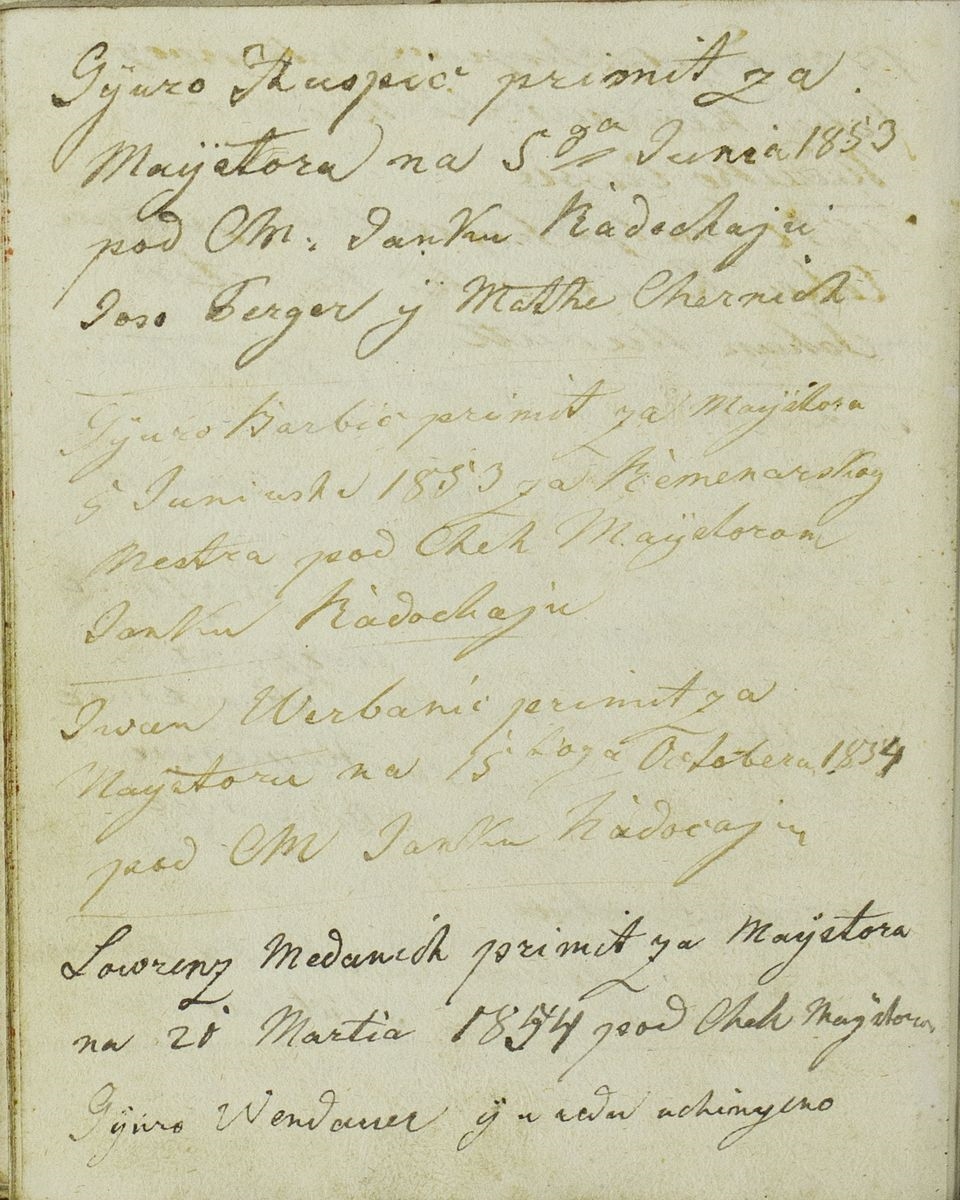 Gÿuro Kuspic primit za
Maÿstora na 5ga Junia 1853
pod CM. Janku Radochaju
Joso Ferger ÿ Mathe Chernich
Gÿuro Barbic primit za Maÿstora
5 Juniusha 1853 za Remenarskog
Mestra pod Cheh Maÿstorom
Janku Radochaju
Iwan Werbanic primit za
Maÿstora na 15toga Octobera 1854
pod CM Janku Radocaju
Lowrenz Medanich primit za Maÿstora
na 20 Martia 1854 pod Cheh Maÿstorom
Gÿuro Wendauer ÿ u redu uchinyeno